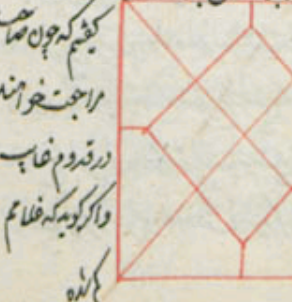 کفتیم که چون صاحب
مراجعت خواهند
در قدوم غایب
و اگر کوید که غلامم
کم شده